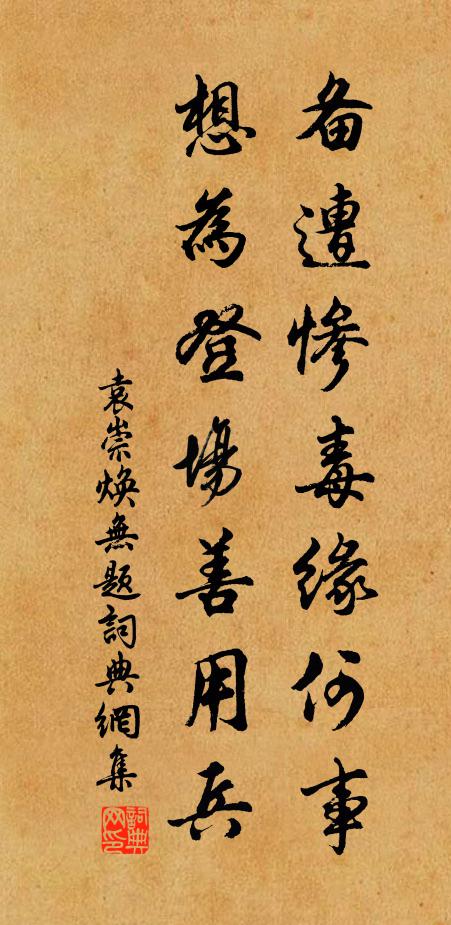 备遭惨毒缘何事
想為登場善用兵
袁崇焕無题詞典網集
詞典网印